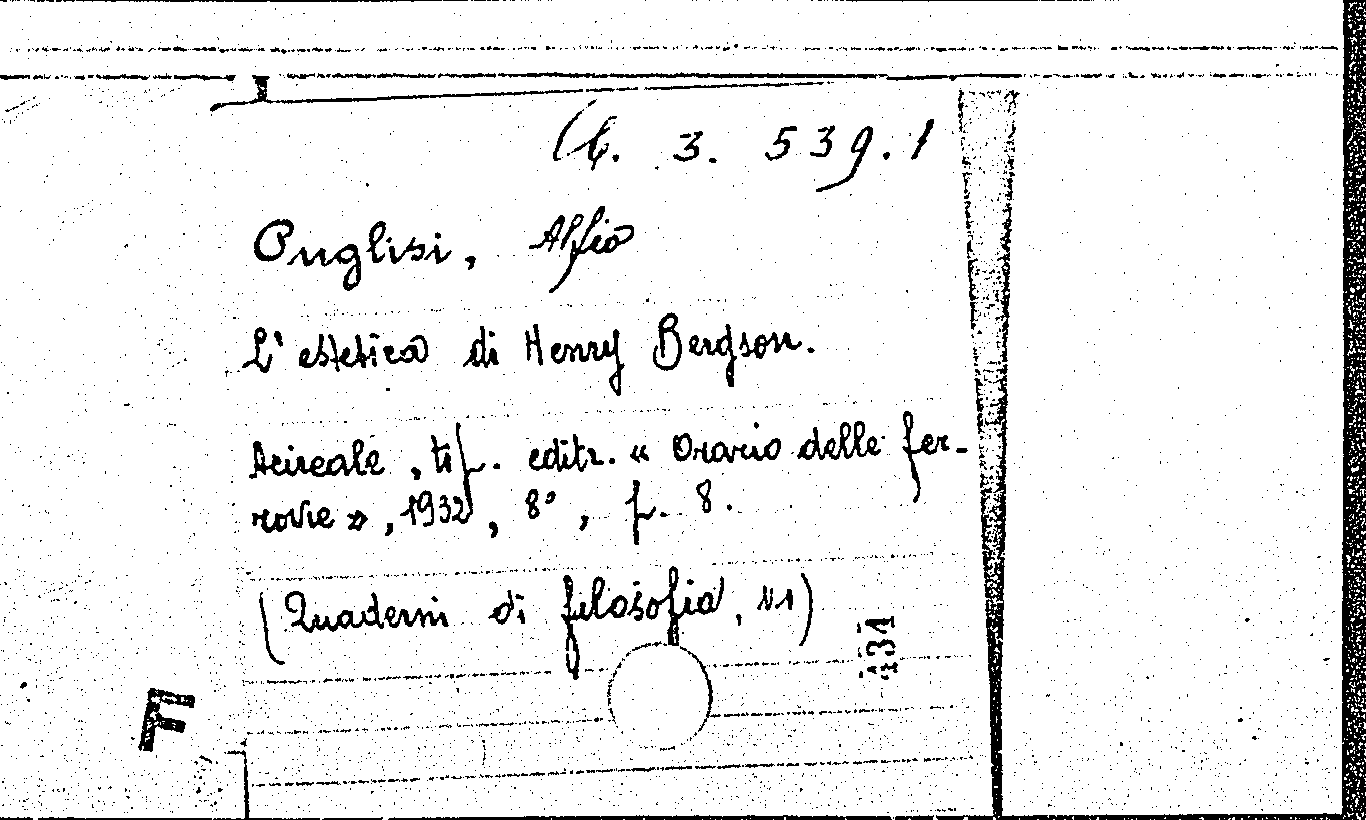 3. 539.1
Puglisi, Alfio
L'estetica di Henry Bergson.
Acireale, tip. editr. « Orario delle fer-
rovie », 1932, 8°, p. 8.
(Quaderni di filosofia, N1)
431
F